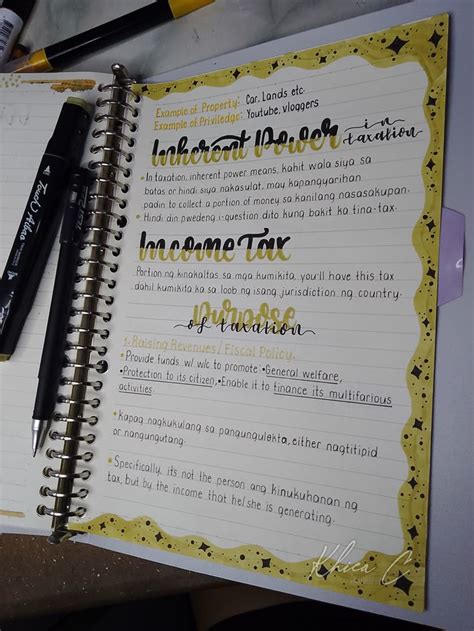 Example of Property: Car, Lands etc.
Example of Priviledge: Youtube, vloggers
Inherent Power in taxation
• In taxation, inherent power means, kahit wala siya sa
batas or hindi siya nakasulat, may kapangyarihan
padin to collect a portion of money sa kanilang nasasakupan.
• Hindi din pwedeng i-question dito kung bakit ka tina-tax.
Income Tax
Portion ng kinakaltas sa mga kumikita, you'll have this tax
dahil kumikita ka sa loob ng isang jurisdiction ng country.
Purpose
of taxation
1. Raising Revenues/Fiscal Policy.
•Provide funds w/ w/c to promote •General welfare,
•Protection to its citizen, •Enable it to finance its multifarious
activities.
• kapag nagkukulang sa pangungulekta, either nagtitipid
or nangungutang.
• Specifically, its not the person ang kinukuhanan ng
tax, but by the income that he/she is generating.
Khica C.
Touch